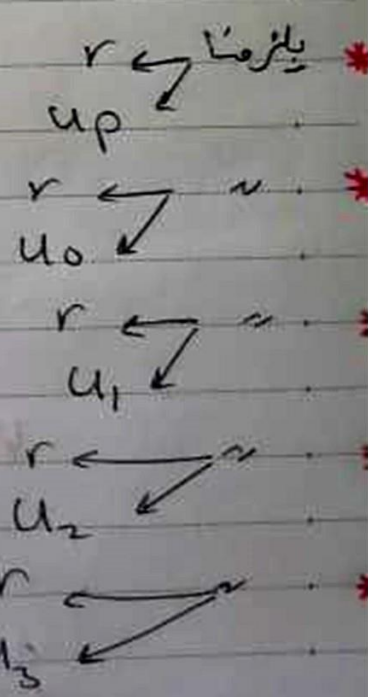 * يلزمنا r
up
* ~ r
uo
* ~ r
u1
* ~ r
u2
* ~ r
u3